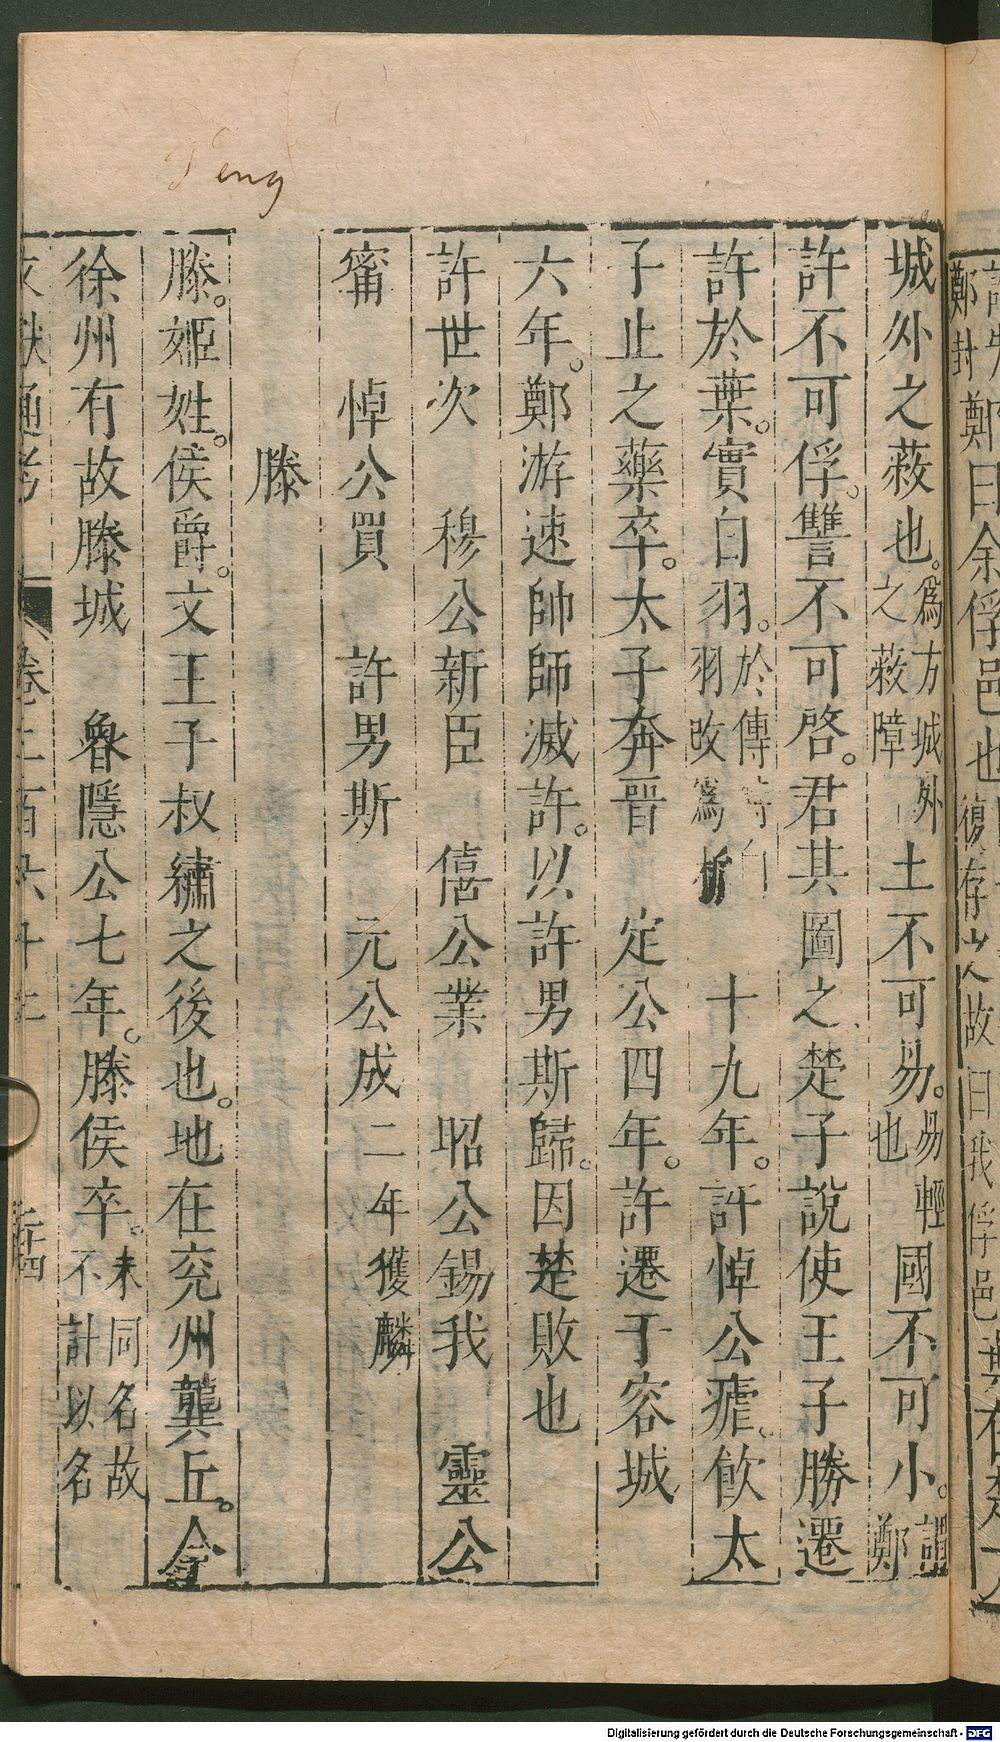 Teng
城外之蔽也。爲方城外之蔽障土不可易。易輕也國不可小。謂鄭
許不可俘。讐不可啓。君其圖之楚子說使王子勝遷
許於葉。實白羽。於傳時白羽改爲析十九年。許悼公瘧。飮太
子止之藥卒。太子奔晉 定公四年。許遷于容城
六年。鄭游速帥師滅許。以許男斯歸。因楚敗也
許世次 穆公新臣 僖公業 昭公錫我 靈公
甯 悼公買 許男斯 元公成二年獲麟
滕
滕。姬姓。侯爵。文王子叔繡之後也。地在兖州龔丘。今
徐州有故滕城 魯隱公七年。滕侯卒。未同名故不計以名
文獻通考 卷二百六十二
Digitalisierung gefördert durch die Deutsche Forschungsgemeinschaft - DFG